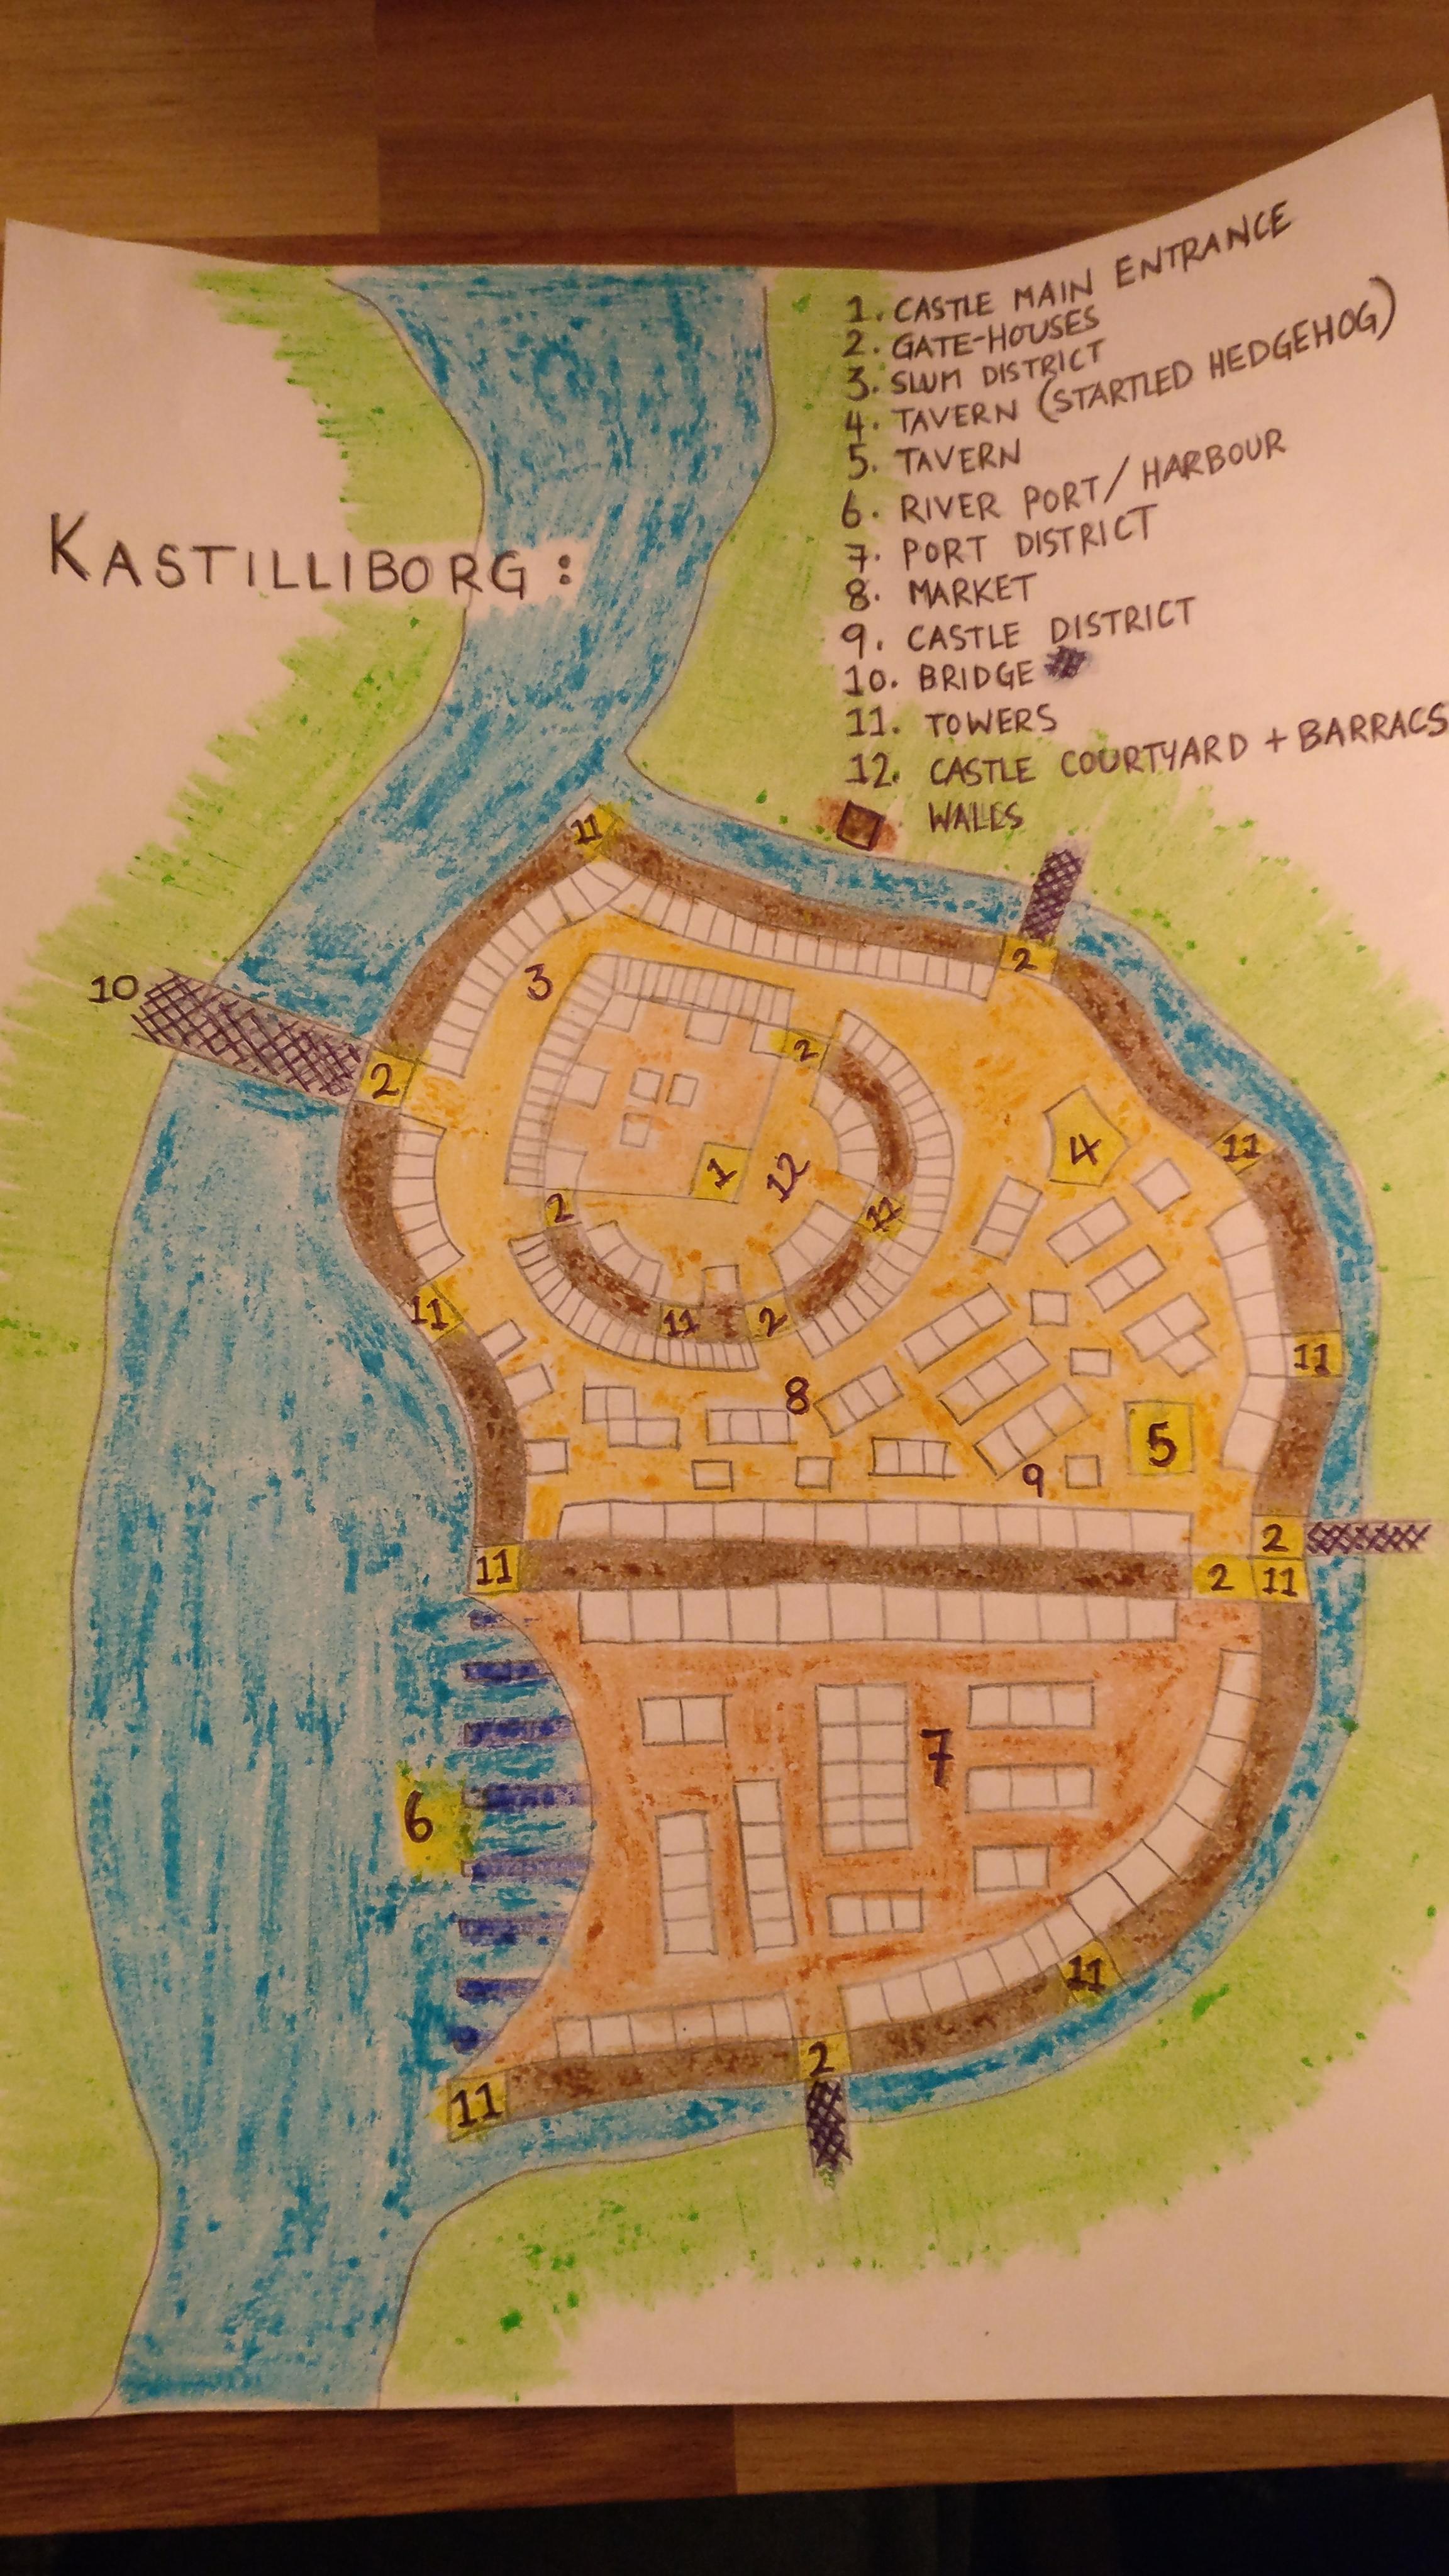 KASTILLIBORG:
1. CASTLE MAIN ENTRANCE
2. GATE-HOUSES
3. SLUM DISTRICT
4. TAVERN (STARTLED HEDGEHOG)
5. TAVERN
6. RIVER PORT/HARBOUR
7. PORT DISTRICT
8. MARKET
9. CASTLE DISTRICT
10. BRIDGE
11. TOWERS
12. CASTLE COURTYARD + BARRACS
WALLS
11
2
3
10
2
2
4
11
1
12
2
11
11
11
2
11
8
5
9
2
11
2
11
7
6
11
2
11